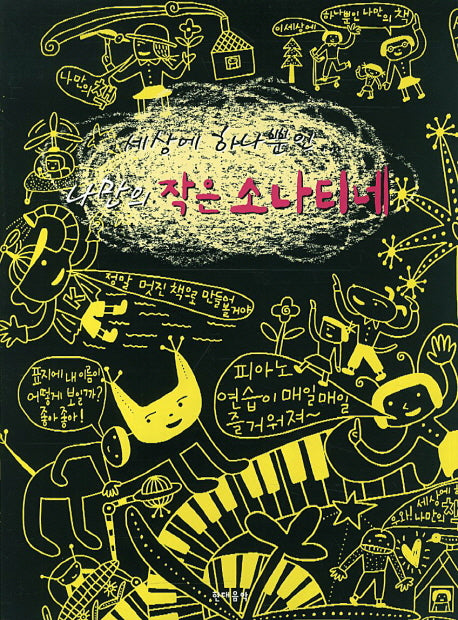 나만의 책
이세상에
하나뿐인 나만의 책
세상에 하나뿐인
나만의 작은 소나티네
정말 멋진 책으로 만들었
거야
표지에 내 이름이
어떻게 보일까?
좋아 좋아!
피아노
연습이 매일매일
즐거워져~
세상에
우와! 나만의
현대음악